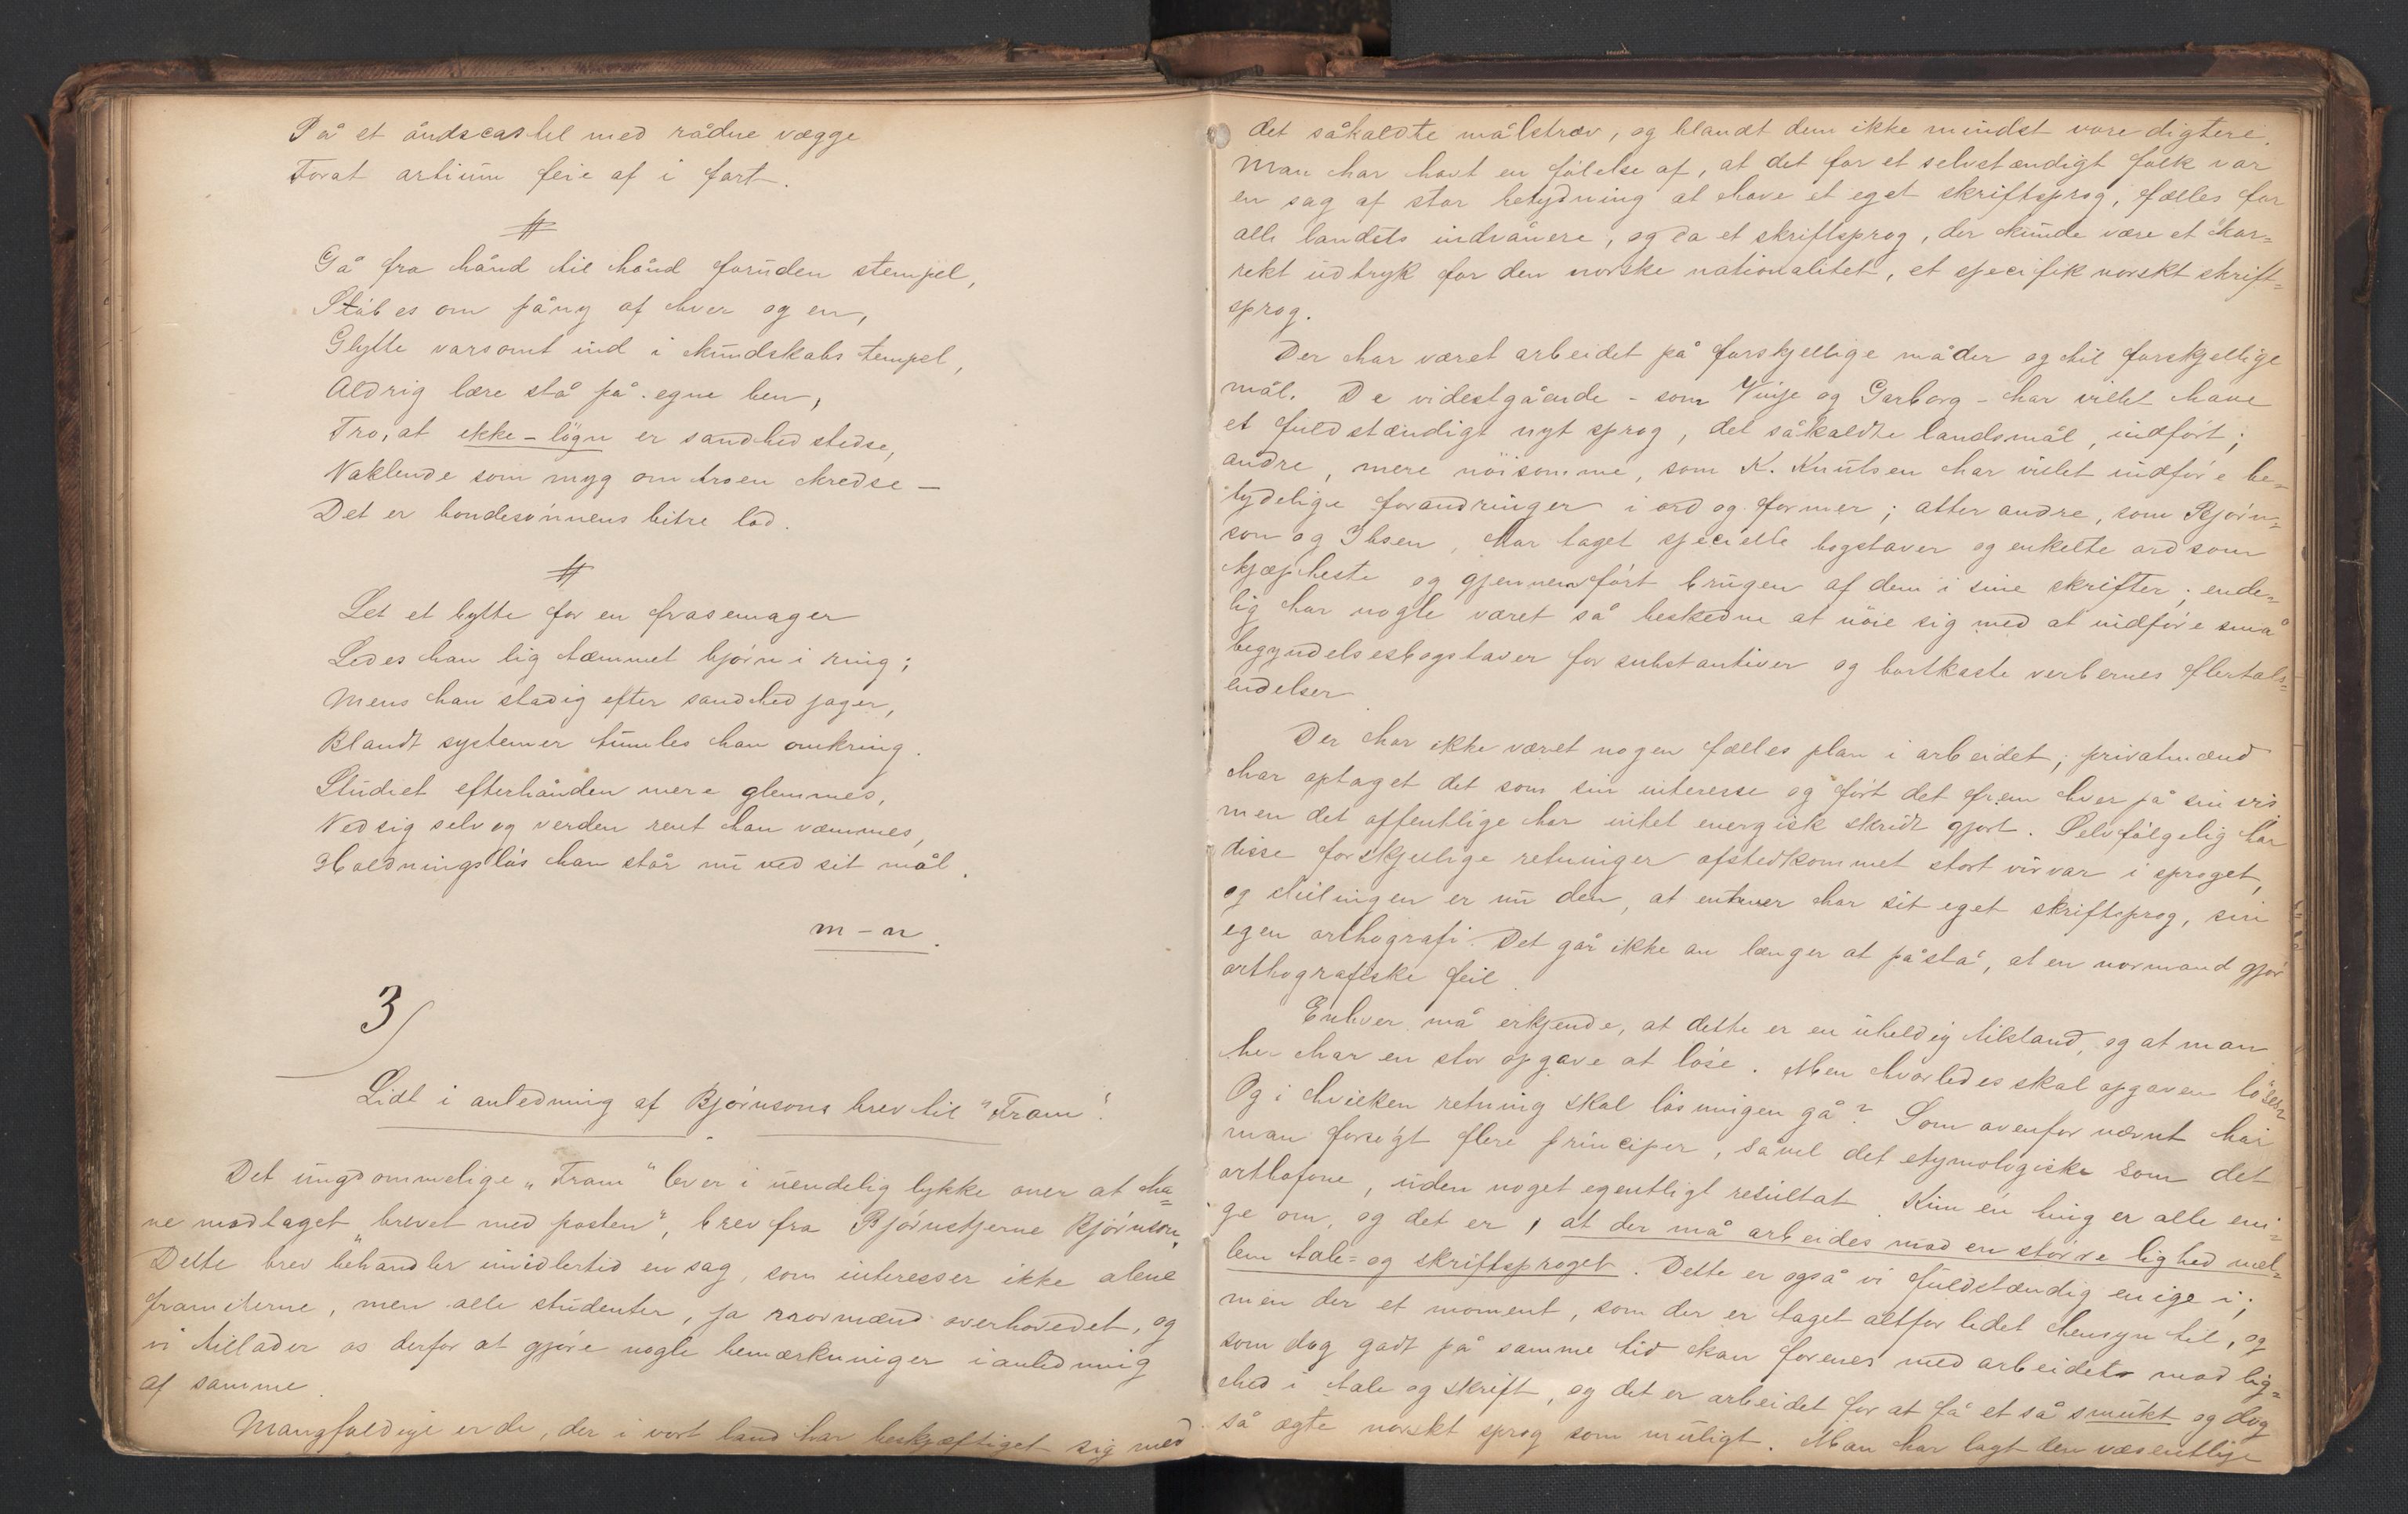 På et åndscastel med rådne vægge
Forat artium feie af i fart.
#
Gå fra hånd til hånd foruden stempel,
Støbes om påny af hver og en,
Glytte varsomt ind i kundskabs tempel,
Aldrig lære stå på egne ben,
Tro, at ikke-løgn er sandhed stedse,
Vaklende som myg om troen kredse –
Det er bondesønnens bitre lod.
#
Let et bytte for en frasemager
Ledes han lig tæmmet bjørn i ring;
Mens han stadig efter sandhed jager,
Blandt systemer tumles han omkring.
Studiet efterhånden mere glemmes,
Ved sig selv og verden rent han væmmes,
Holdningsløs han står nu ved sit mål.
m – n.
3)
Lidt i anledning af Bjørnsons brev til "Fram".
Det ungdommelige „Fram“ lever i uendelig lykke over at ha-
ve modtaget „brevet med posten“, brev fra Bjørnstjerne Bjørnson.
Dette brev behandler imidlertid en sag, som interesser ikke alene
framiterne, men alle studenter, ja nordmænd overhovedet, og
vi tillader os derfor at gjøre nogle bemærkninger i anledning
af samme.
Mangfoldige er de, der i vort land har beskjæftiget sig med
det såkaldte målstræv, og blandt dem ikke mindst vore digtere.
Man har havt en følelse af, at det for et selvstændigt folk var
en sag af stor betydning at have et eget skriftsprog, fælles for
alle landets indvånere, og da et skriftsprog, der kunde være et kor-
rekt udtryk for den norske nationalitet, et specifik norskt skrift-
sprog.
Der har været arbeidet på forskjellige måder og til forskjellige
mål. De videstgående – som Vinje og Garborg – har villet have
et fuldstændigt nyt sprog, det såkaldte landsmål, indført;
andre, mere nøisomme, som K. Knutsen har villet indføre be-
tydelige forandringer i ord og former; atter andre, som Bjørn-
son og Ibsen, har taget specielle bogstaver og enkelte ord som
kjæpheste og gjennemført brugen af dem i sine skrifter; ende-
lig har nogle været så beskedne at nøie sig med at indføre små
begyndelsesbogstaver for substantiver og bortkaste verbernes flertals-
endelser.
Der har ikke været nogen fælles plan i arbeidet; privatmænd
har optaget det som sin interesse og ført det frem hver på sin vis
men det offentlige har intet energisk skridt gjort. Selvfølgelig har
disse forskjellige retninger afstedkommet stort virvar i sproget,
og stillingen er nu den, at enhver har sit eget skriftsprog, sin
egen orthografi. Det går ikke an længer at påstå, at en normand gjør
orthografiske feil.
Enhver må erkjende, at dette er en uheldig tilstand, og at man
her har en stor opgave at løse. Men hvorledes skal opgaven løses?
Og i hvilken retning skal løsningen gå? Som ovenfor nævnt har
man forsøgt flere principer, såvel det etymologiske som det
orthofone, uden noget egentligt resultat. Kun én ting er alle eni-
ge om, og det er, at der må arbeides mod en større lighed mel-
lem tale- og skriftsproget. Dette er også vi fuldstændig enige i;
men der et moment, som der er taget altfor lidet hensyn til, og
som dog godt på samme tid kan forenes med arbeidet mod lig-
hed i tale og skrift, og det er arbeidet for at få et så smukt og dog
så ægte norskt sprog som muligt. Man har lagt den væsentlige